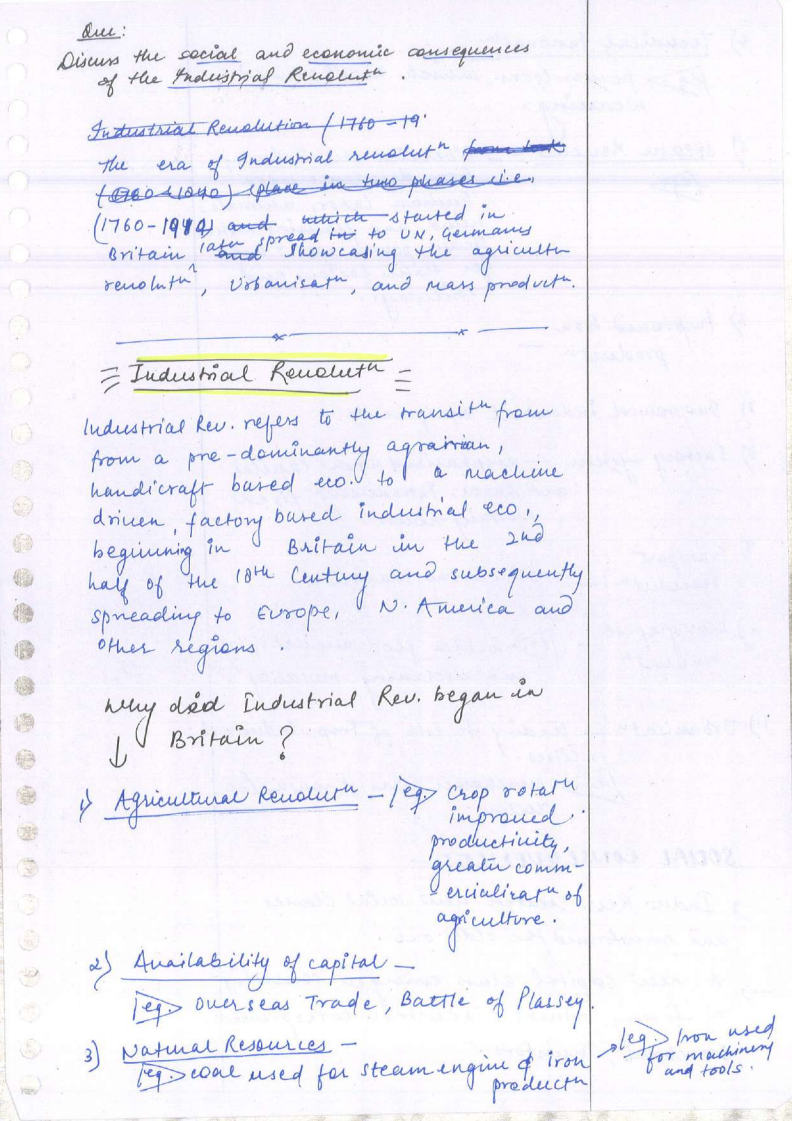 Que:
Discuss the social and economic consequences
of the Industrial Revolutn.
Industrial Revolution (1760-19
The era of Industrial revolutn from
(1760-1840) place in two phases i.e.
(1760-1940) and which started in
Britain later spread in to UN, Germans
and showcasing the agricultn
revolutn, Urbanisatn, and mass productn.
Industrial Revolutn
Industrial Rev. refers to the transitn from
from a pre-dominantly agrarian,
handicraft based eco. to a machine
driven, factory based industrial eco.,
beginning in Britain in the 2nd
half of the 18th Century and subsequently
spreading to Europe, N. America and
other regions.
Why did Industrial Rev. began in
Britain?
1) Agricultural Revolutn - eg Crop rotatn
improved
productivity,
greater comm-
ercializatn of
agriculture.
2) Availability of capital -
eg Overseas Trade, Battle of Plassey.
3) Natural Resources -
eg coal used for steam engine & iron
productn
→ eg. Iron used
for machinery
and tools.